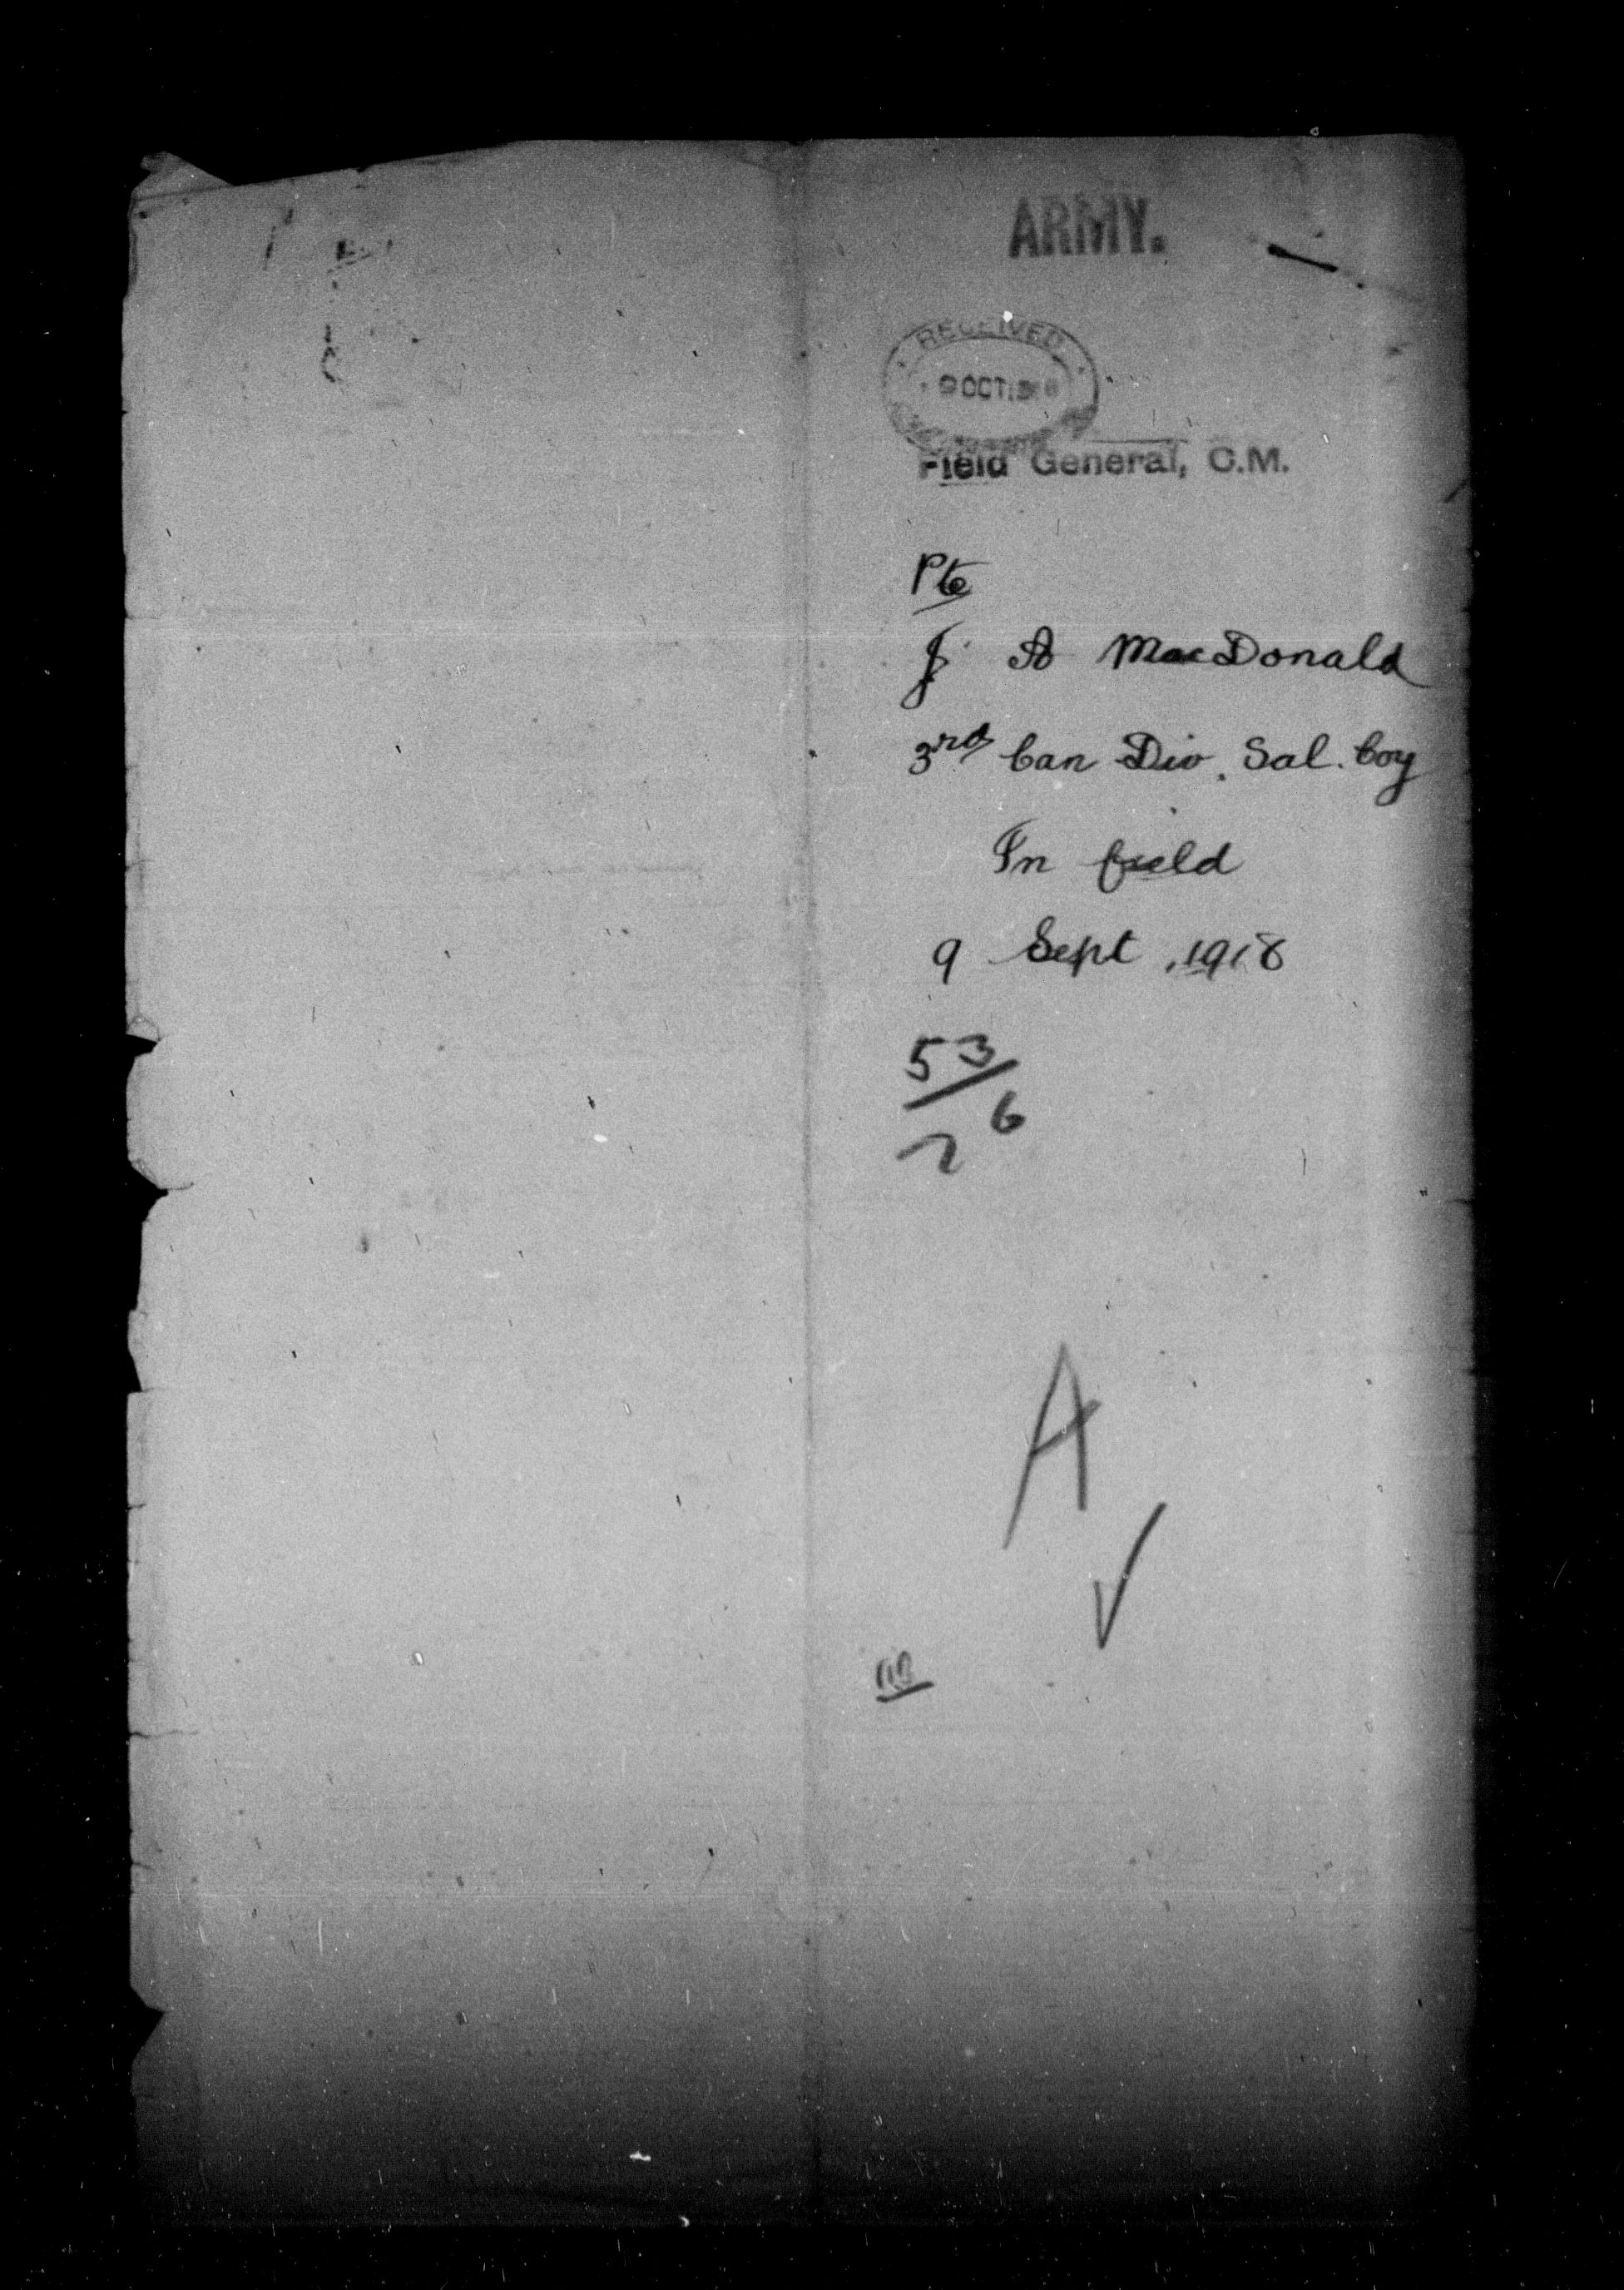 ARMY.
RECEIVED
9 OCT 1918
Field General, C.M.
Pte
J. A MacDonald
3rd Can Div. Sal. Coy
In field
9 Sept, 1918
53/6
7
A